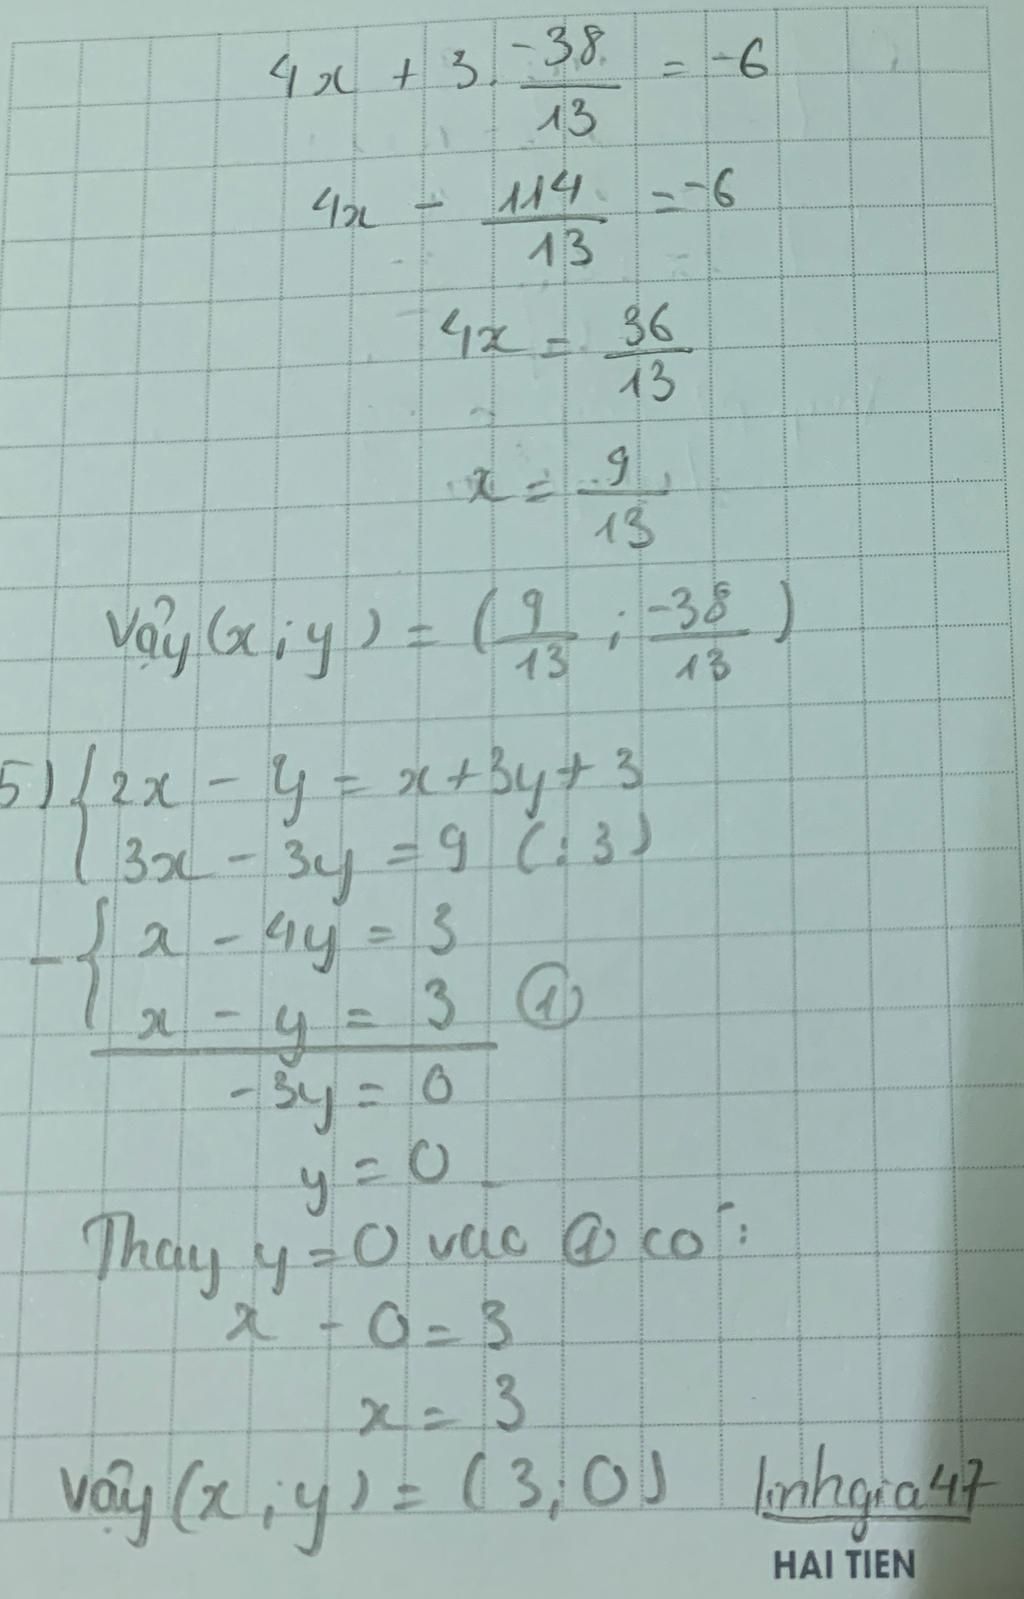 4x + 3. -38/13 = -6
4x - 114/13 = -6
4x = 36/13
x = 9/13
Vậy (x ; y) = (9/13 ; -38/13)
5) { 2x - y = x + 3y + 3
3x - 3y = 9 (: 3)
- { x - 4y = 3
x - y = 3 ①
-3y = 0
y = 0
Thay y = 0 vào ① có :
x - 0 = 3
x = 3
Vậy (x ; y) = (3 ; 0) linhgia47
HAI TIEN